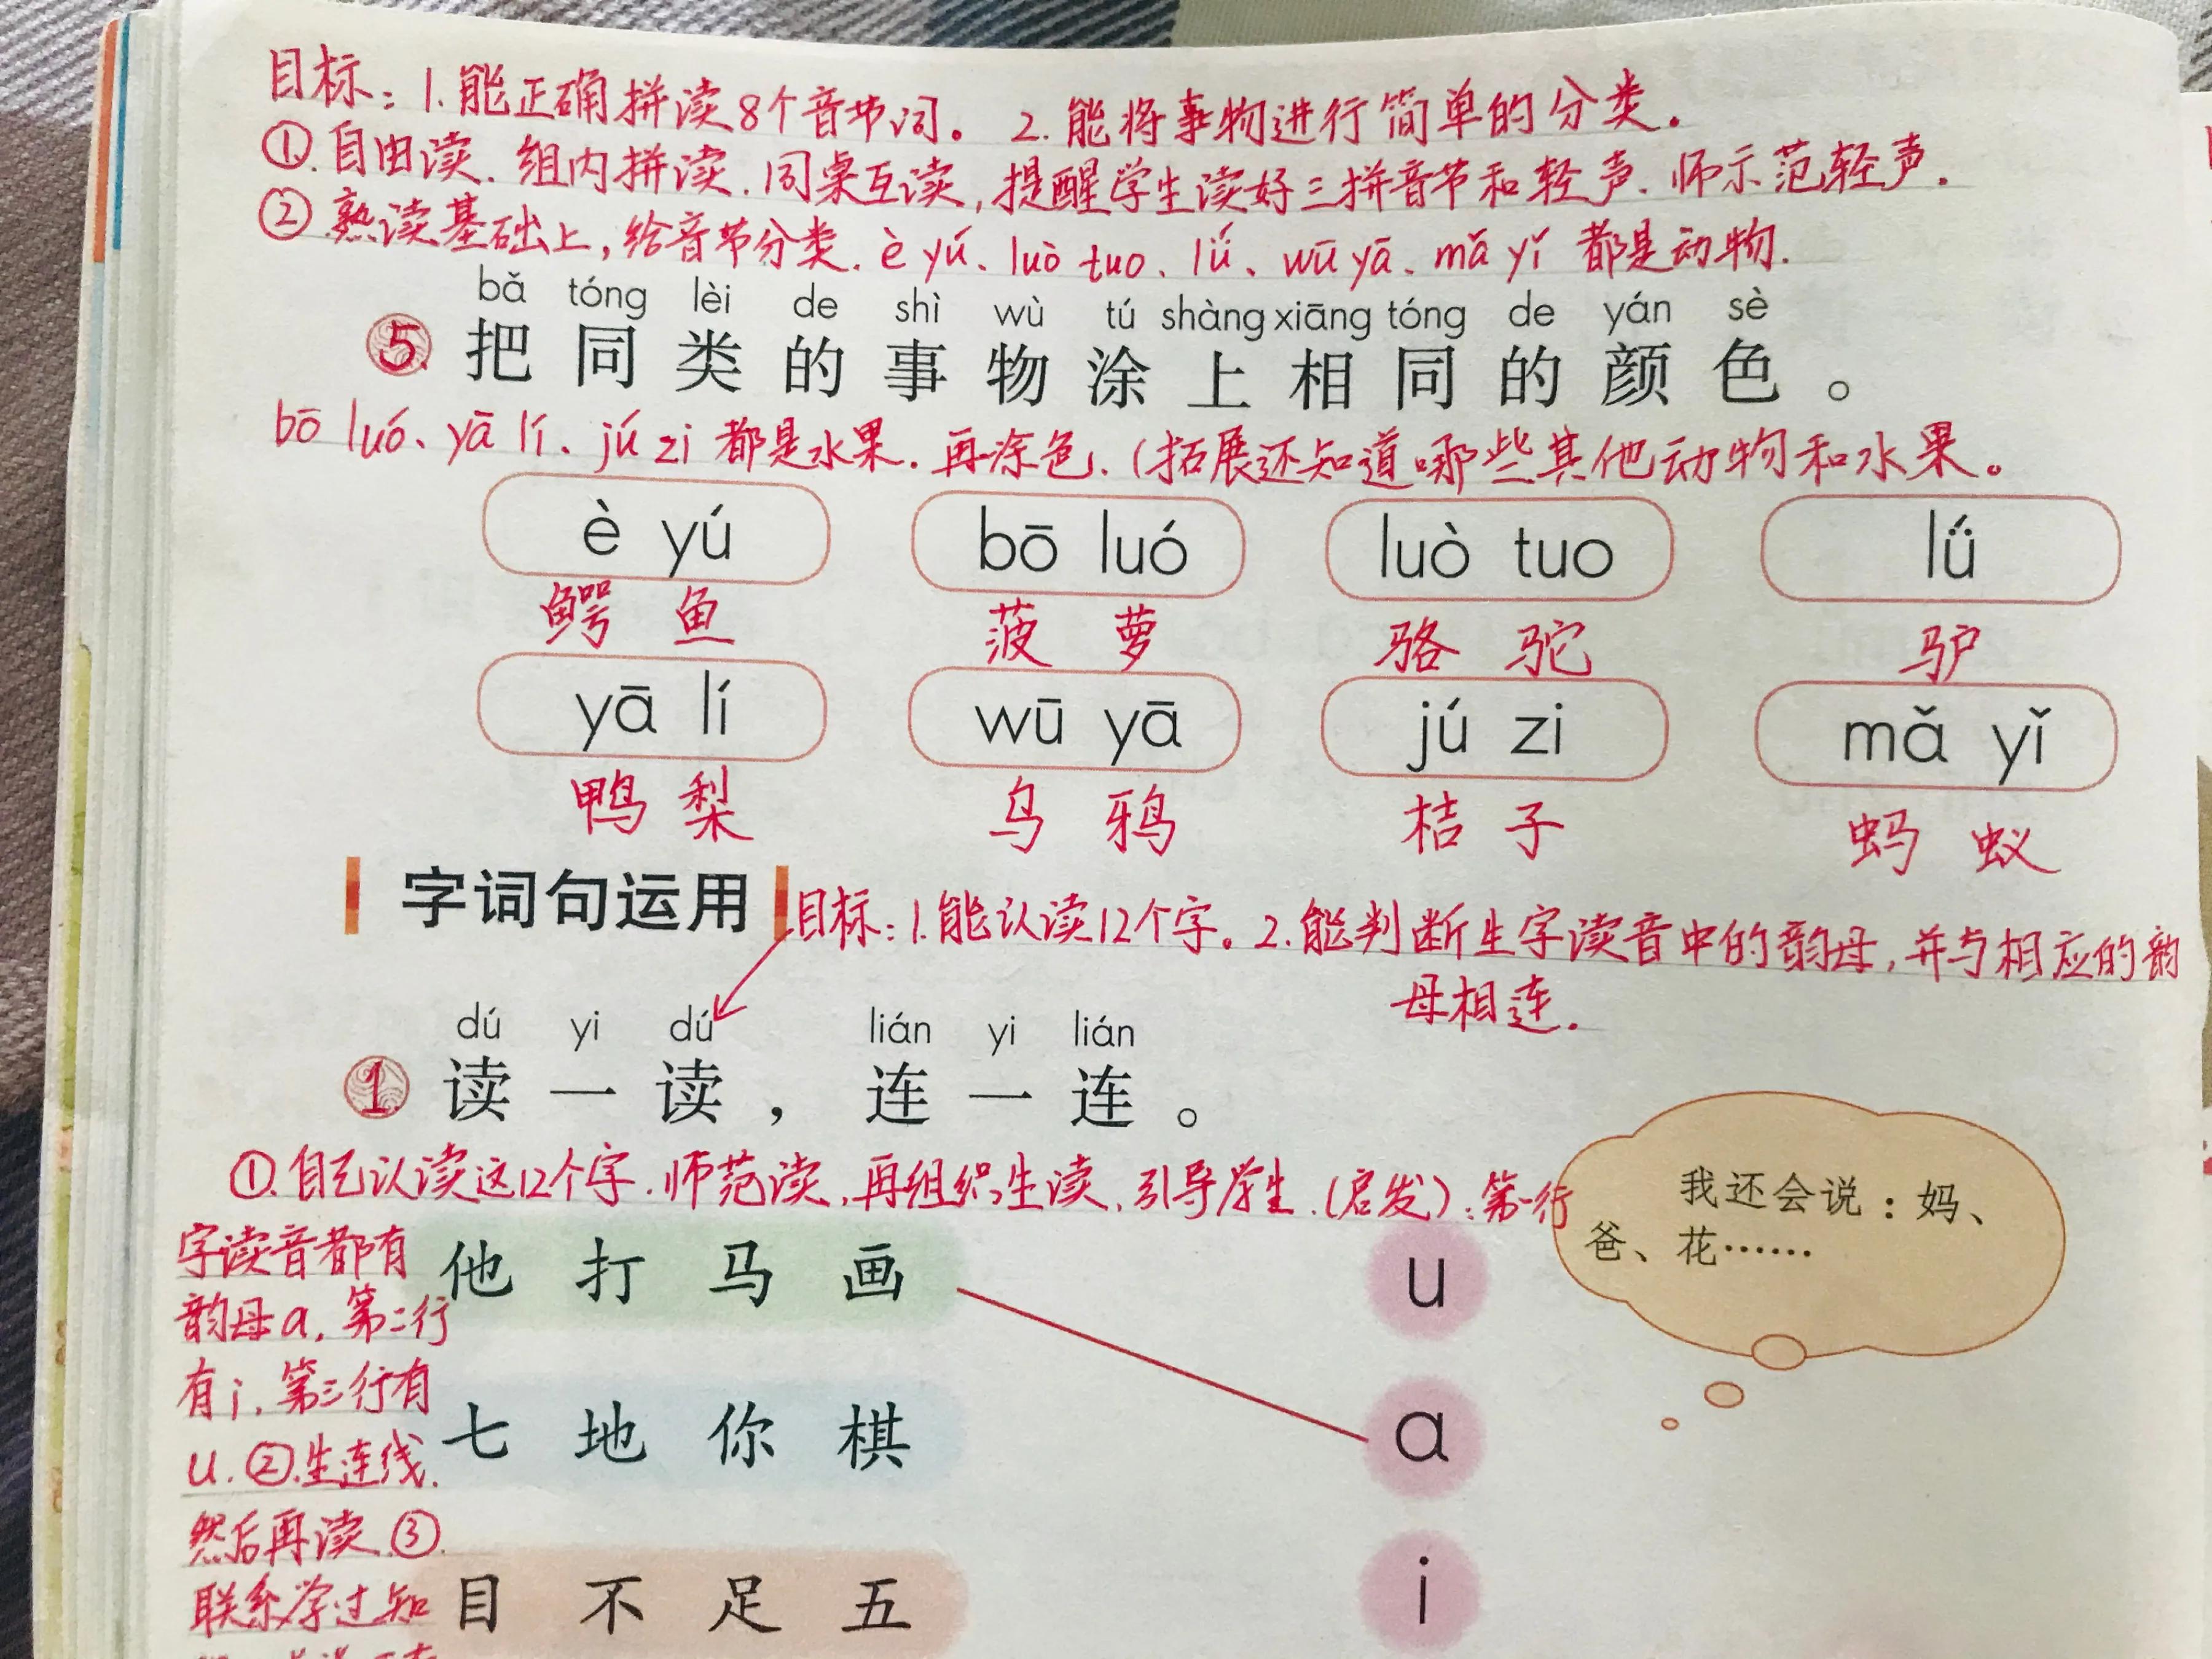 目标：1.能正确拼读8个音节词。 2.能将事物进行简单的分类。
①.自由读.组内拼读.同桌互读,提醒学生读好三拼音节和轻声.师示范轻声.
②熟读基础上,给音节分类.è yú、luò tuo、lǘ、wū yā、mǎ yǐ 都是动物.
bǎ tóng lèi de shì wù tú shàng xiāng tóng de yán sè
5. 把同类的事物涂上相同的颜色。
bō luó、yā lí、jú zi 都是水果.再涂色.(拓展还知道哪些其他动物和水果。
è yú bō luó luò tuo lǘ
鳄鱼 菠萝 骆驼 驴
yā lí wū yā jú zi mǎ yǐ
鸭梨 乌鸦 桔子 蚂蚁
字词句运用
目标：1.能认读12个字。2.能判断生字读音中的韵母,并与相应的韵
母相连.
dú yi dú lián yi lián
1. 读一读，连一连。
①.自己认读这12个字.师范读,再组织生读,引导学生.(启发):第一行
字读音都有
韵母a,第二行
有i,第三行有
u.②.生连线.
然后再读.③.
联系学过知
我还会说：妈、
爸、花……
他 打 马 画 u
七 地 你 棋 a
目 不 足 五 i